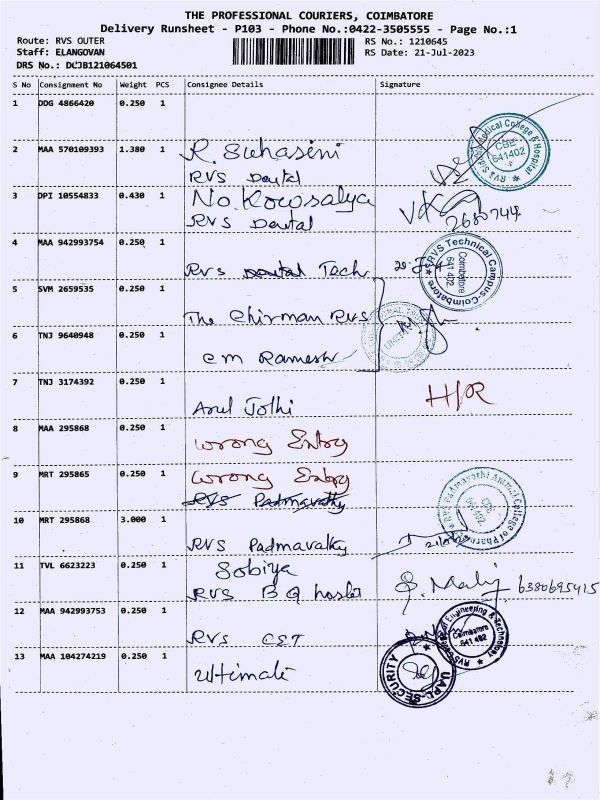 THE PROFESSIONAL COURIERS, COIMBATORE
Delivery Runsheet - P103 - Phone No.:0422-3505555 - Page No.:1
Route: RVS OUTER
Staff: ELANGOVAN
DRS No.: DCJB121064501
RS No.: 1210645
RS Date: 21-Jul-2023
S No Consignment No Weight PCS Consignee Details Signature
1 DDG 4866420 0.250 1
2 MAA 570109393 1.380 1 R. Suhasini
RVS Dental
CBE
641402
3 DPI 10554833 0.430 1 No. Kowsalya
RVS Dental
4 MAA 942993754 0.250 1
RVS Tech
RVS Technical Campus-Coimbatore
Coimbatore
641 402
5 SVM 2659535 0.250 1
The Chirman RVS
6 TNJ 9640948 0.250 1
CM Ramesh
7 TNJ 3174392 0.250 1
Arul Jothi
H/R
8 MAA 295868 0.250 1
Wrong Entry
9 MRT 295865 0.250 1 Wrong Entry
RVS Padmavathy
10 MRT 295868 3.000 1
RVS Padmavathy
11 TVL 6623223 0.250 1 Sobiya
RVS B G hostel
6380695415
12 MAA 942993753 0.250 1
RVS CET
Coimbatore
641 402
13 MAA 104274219 0.250 1 Ultimate
SECURITY